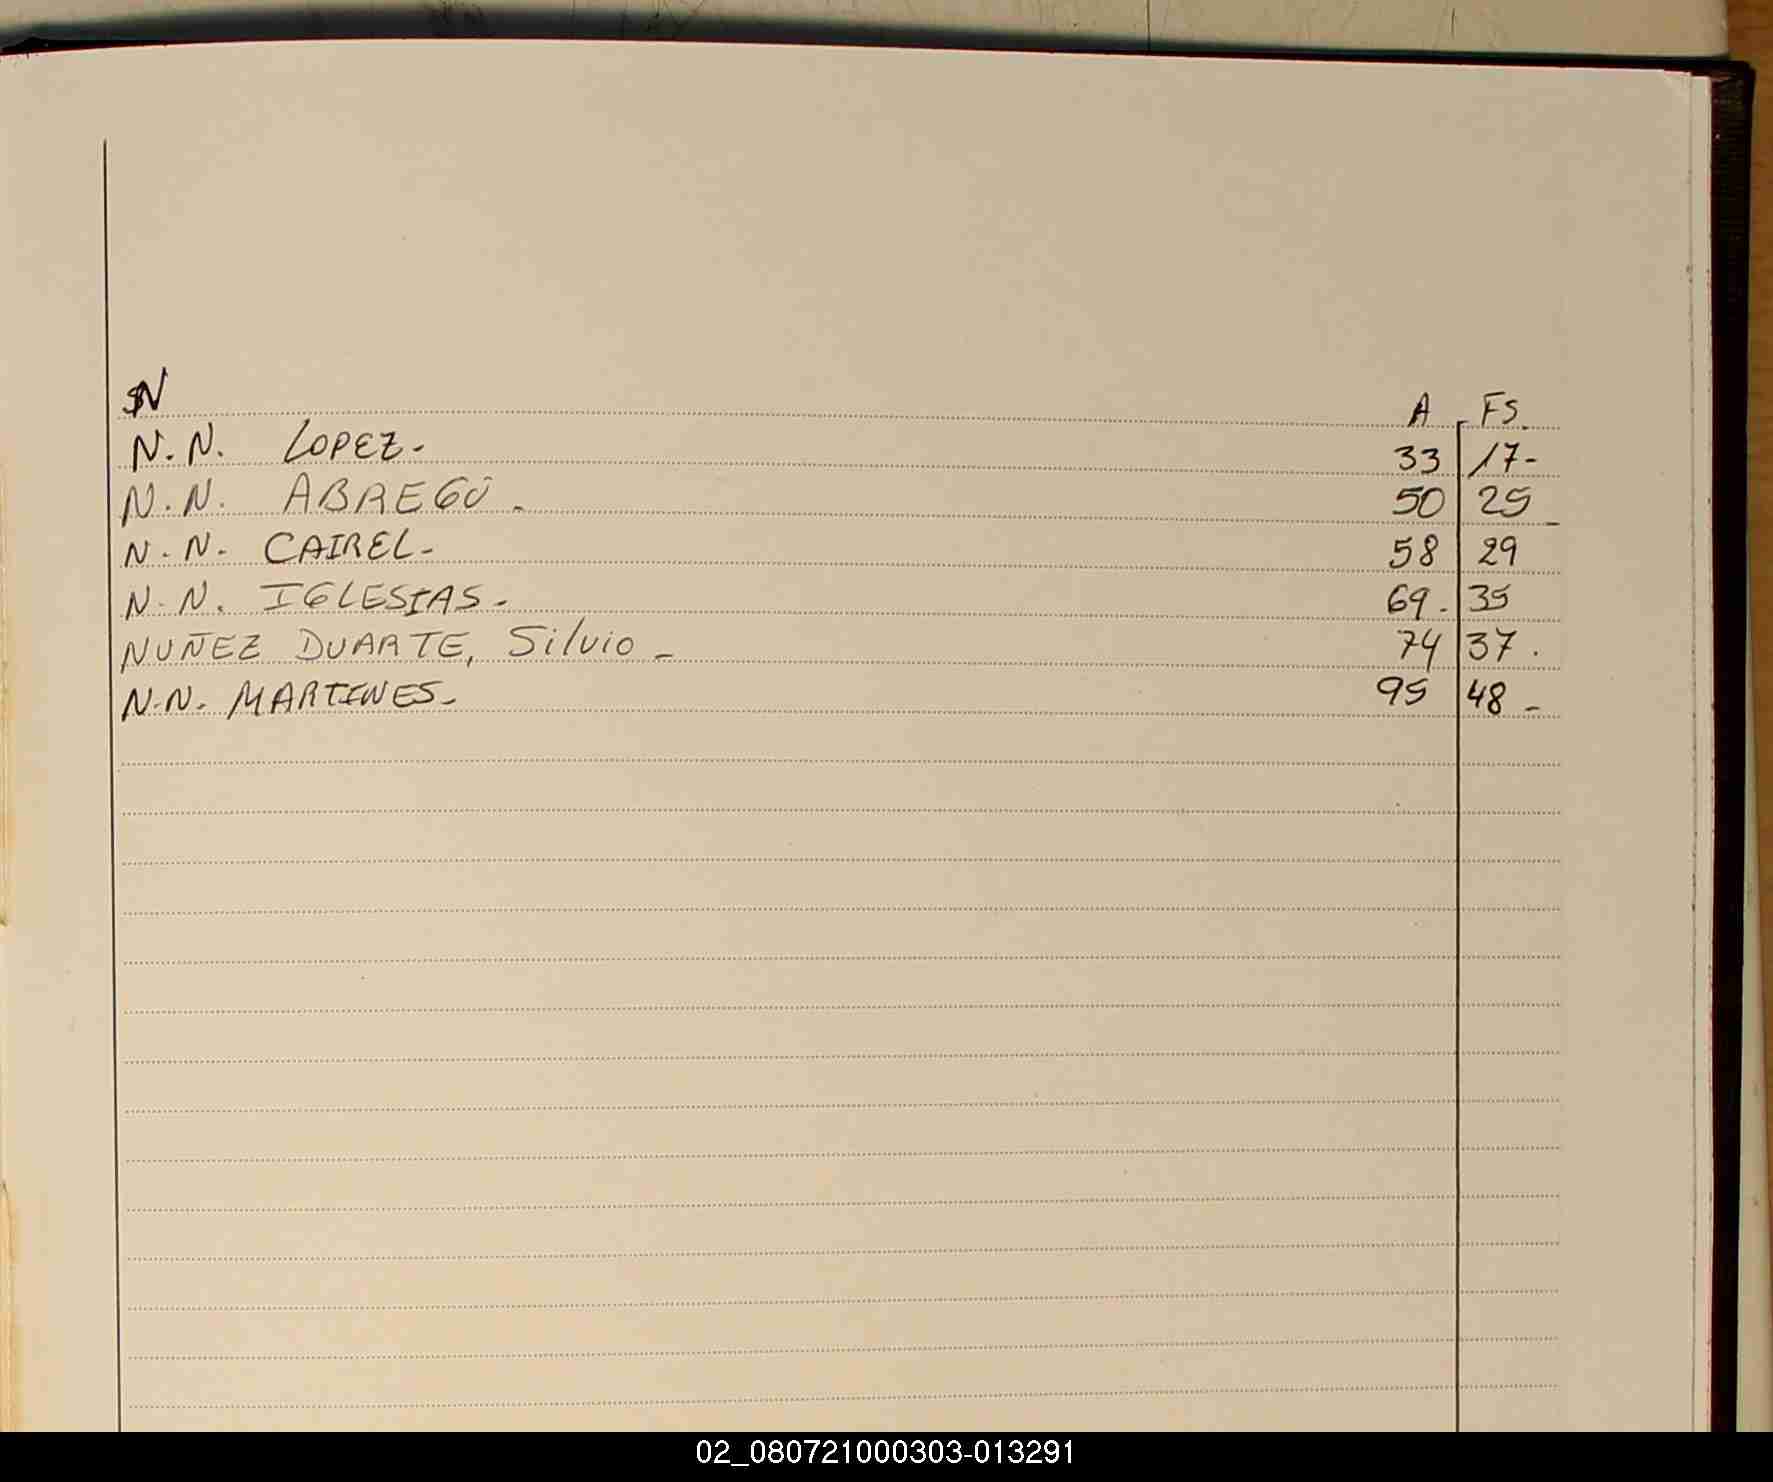 N A FS.
N.N. LOPEZ.- 33 17-
N.N. ABREGÚ.- 50 25-
N.N. CAIREL.- 58 29
N.N. IGLESIAS.- 69. 35
NUÑEZ DUARTE, Silvio.- 74 37.
N.N. MARTINES.- 95 48-
02_080721000303-013291